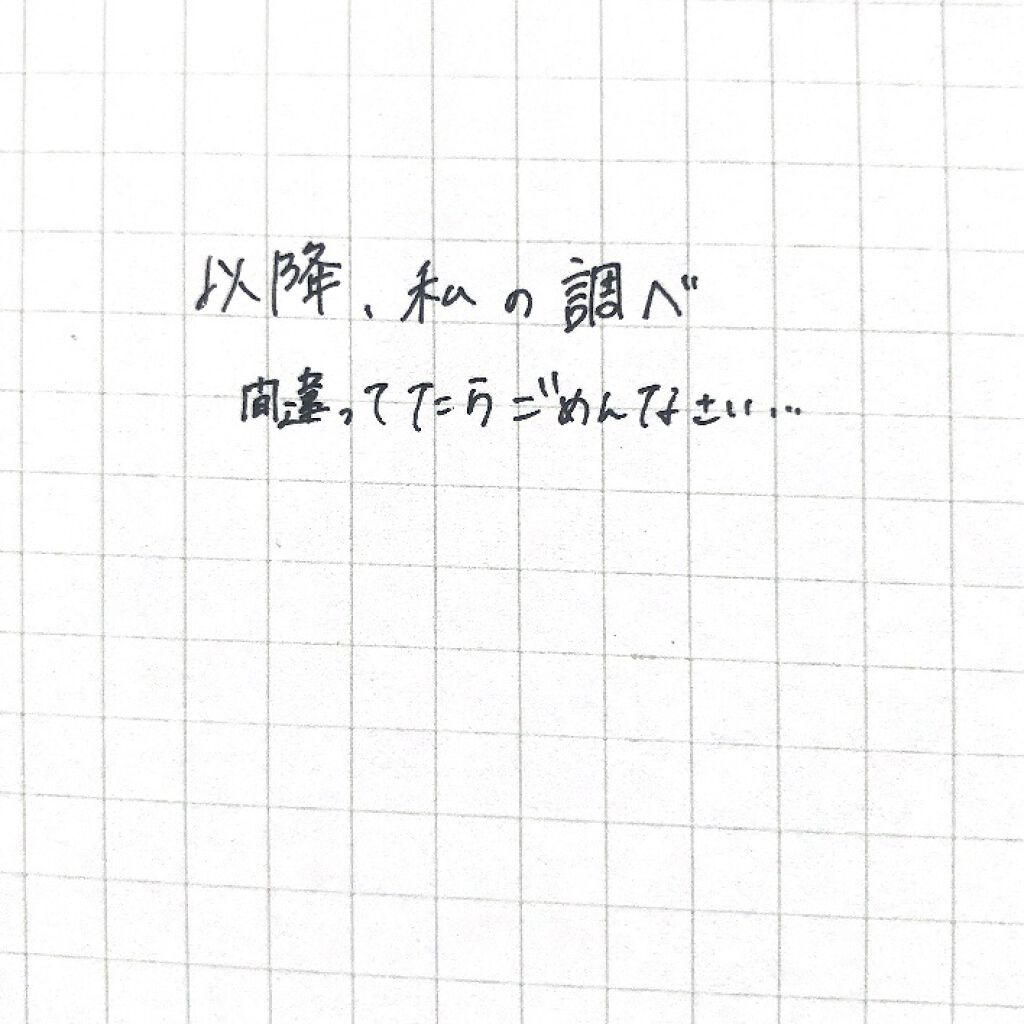 以降、私の調べ
間違ってたらごめんなさい...